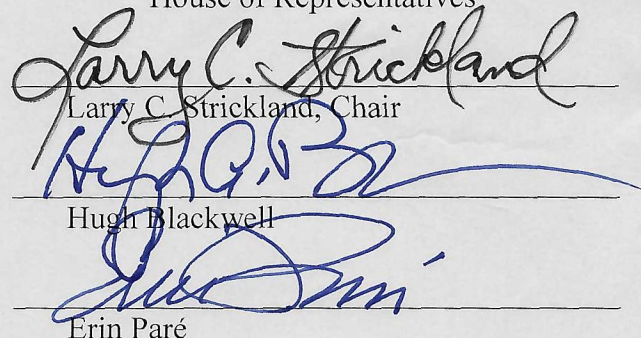 House of Representatives
Larry C. Strickland
Larry C. Strickland, Chair
Hugh A. B
Hugh Blackwell
Erin Paré